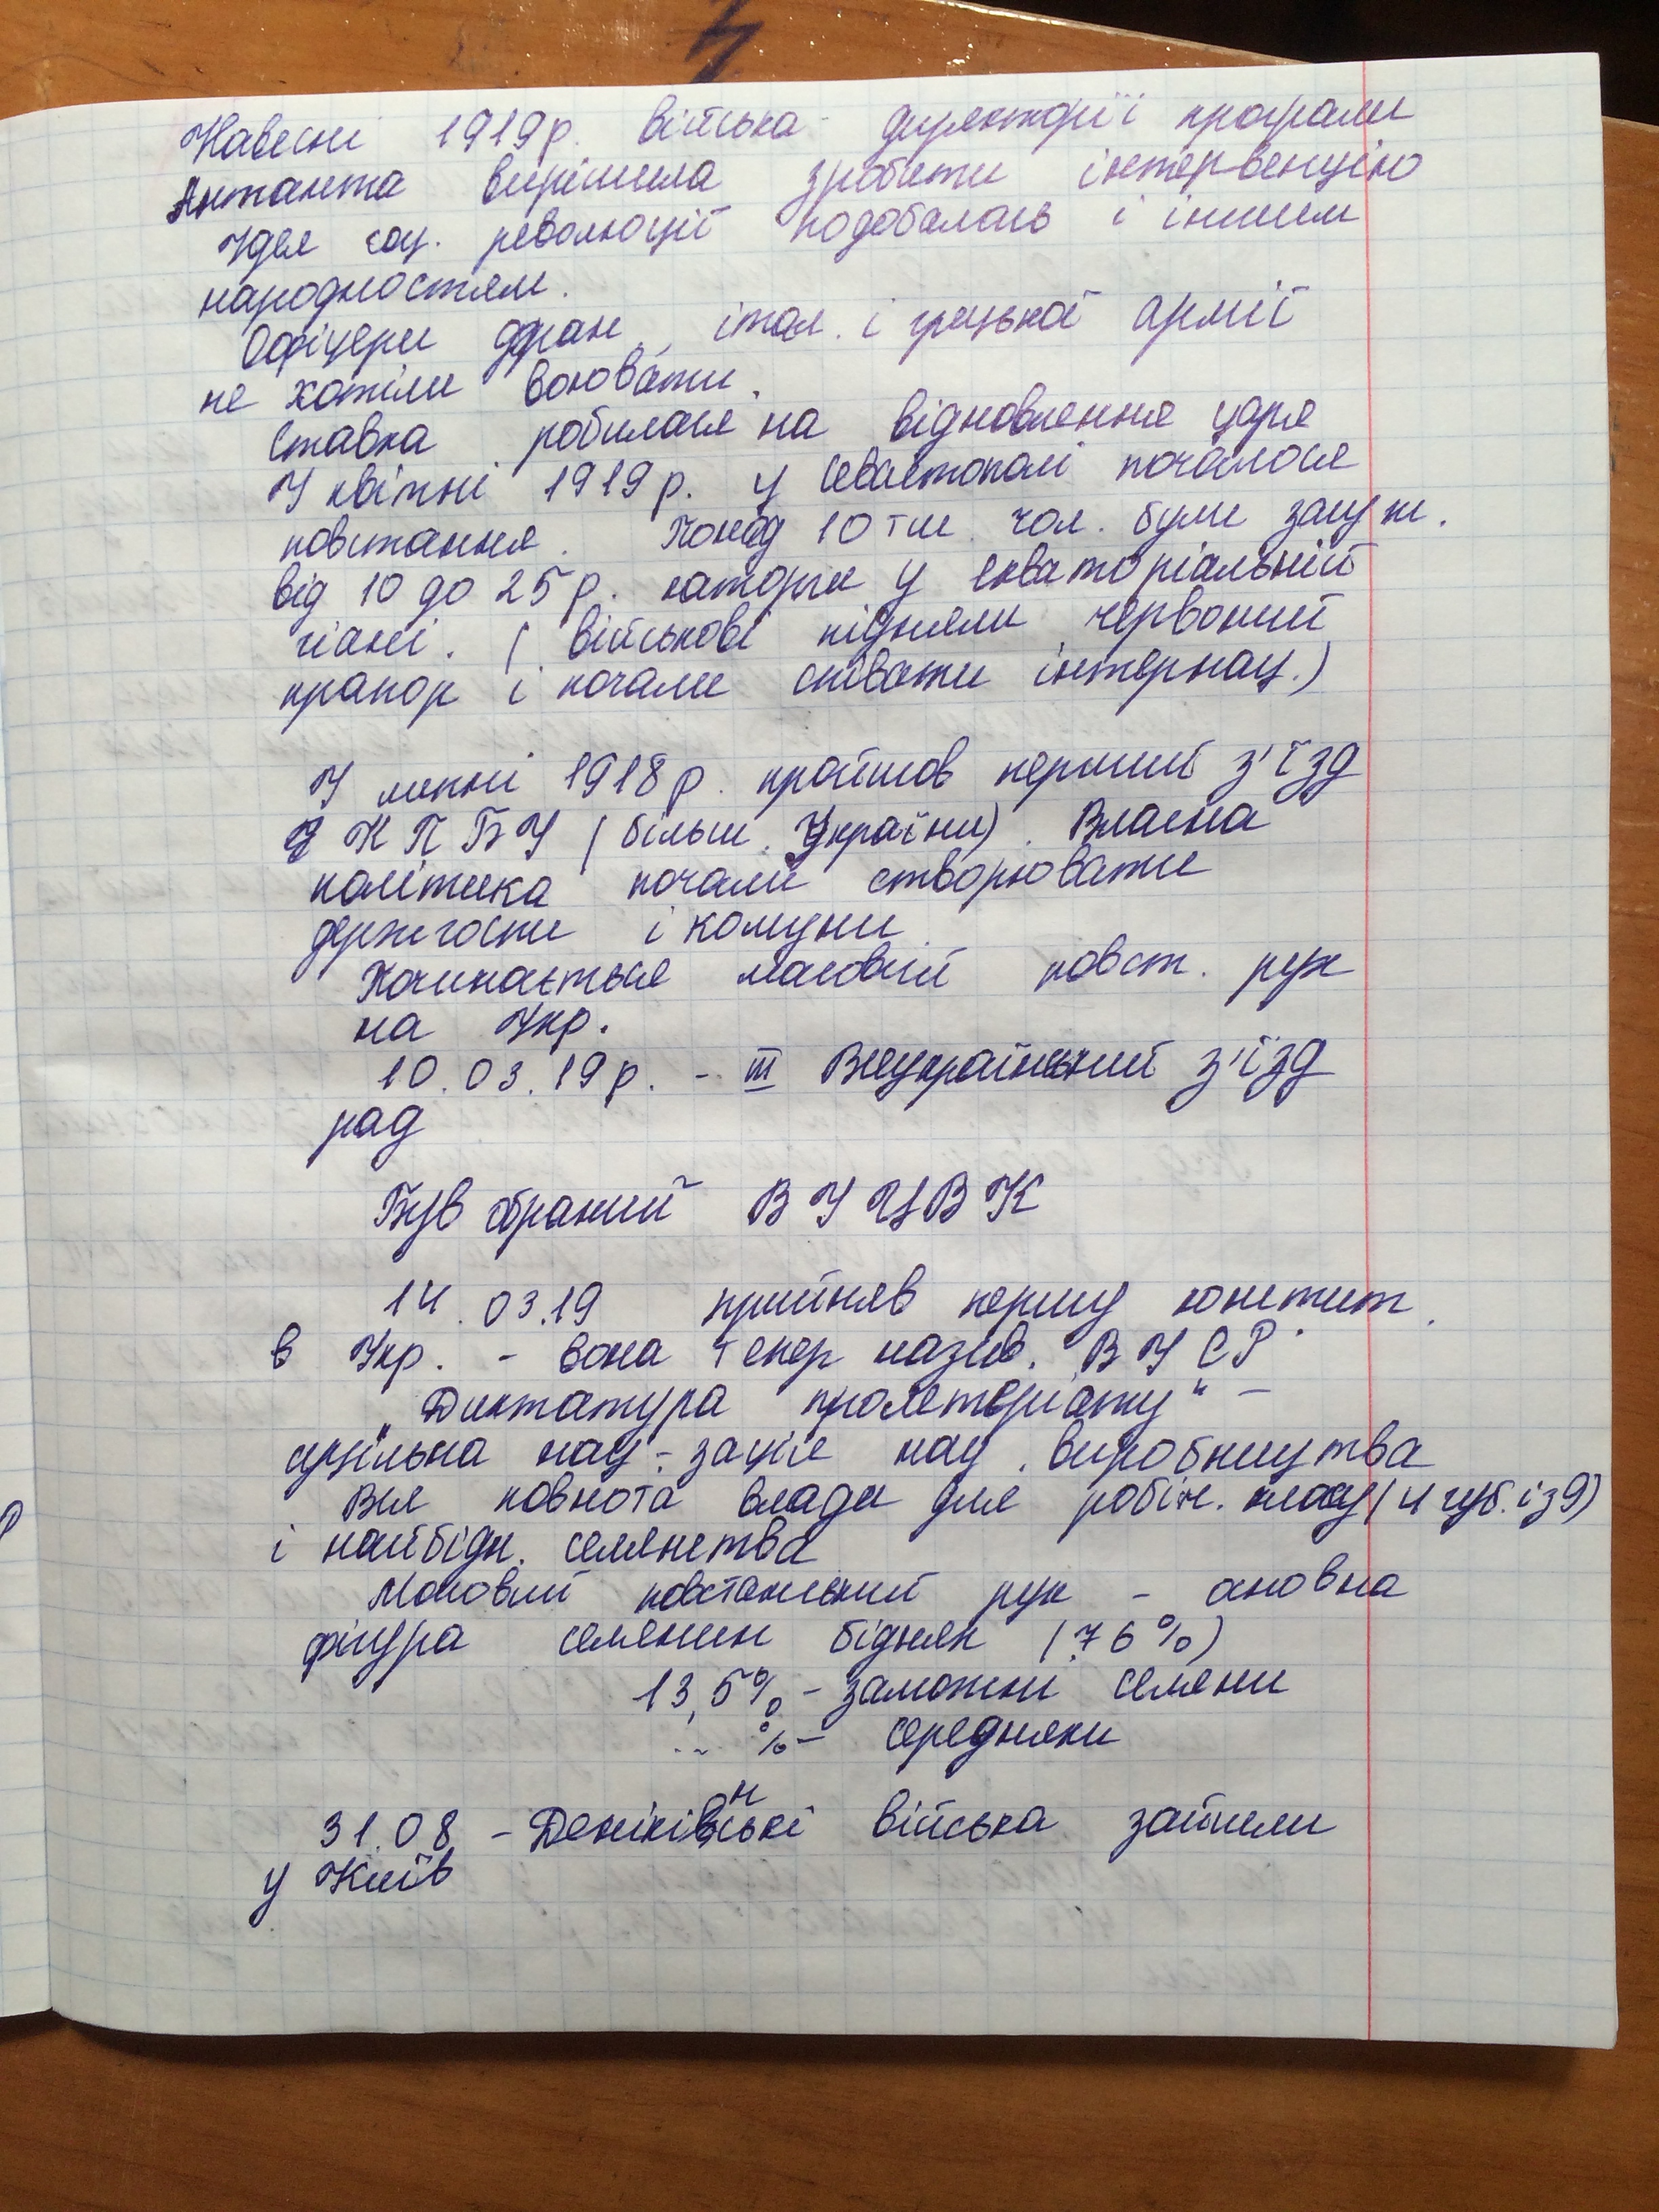 Навесні 1919р. війська директорії програли
Антанта вирішила зробити інтервенцію
Ідея соц. революції подобалась і іншим
народностям.
Офіцери фран., італ. і грецької армії
не хотіли воювати.
Ставка робилася на відновлення царя
У квітні 1919р. у Севастополі почалося
повстання. Понад 10 тис. чол. були засуж.
від 10 до 25 р. каторги у екваторіальній
гіані. (військові підняли червоний
прапор і почали співати інтернац.)
У липні 1918р. пройшов перший з'їзд
КПБУ (більш. України). Власна
політика почали створювати
держгоспи і комуни.
Починається масовий повст. рух
на Укр.
10.03.19р. - III Всеукраїнський з'їзд
рад
Був обраний ВУЦВК
14.03.19 прийняв першу констит.
в Укр. - вона тепер назив. ВУСР
„Диктатура пролетаріату" -
суцільна нац-зація нац. виробництва
Вся повнота влади для робіт. класу (4 губ. із 9)
і найбідн. селянства
Масовий повстанський рух - основна
фігура селянин бідняк (76%)
13,5% - заможні селяни
% - середняки
31.08 - Денікінські війська зайняли
у Київ